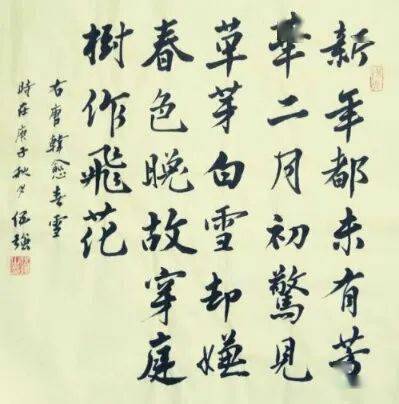 新年都未有芳
華二月初驚見
草芽白雪却嫌
春色晚故穿庭
樹作飛花
右唐韓愈春雪
時在庚子秋月伍強